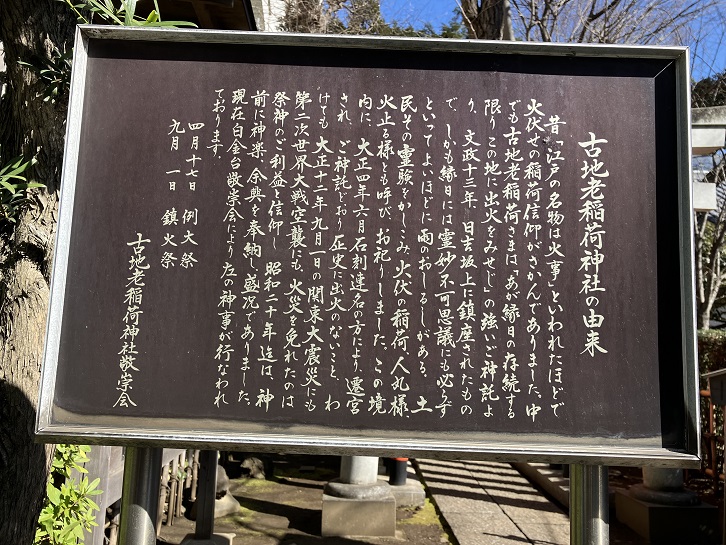 古地老稲荷神社の由来
昔「江戸の名物は火事」といわれたほどで
火伏せの稲荷信仰がさかんでありました、中
でも古地老稲荷さまは「あが縁日の存続する
限りこの地に出火をみせじ」の強いご神託よ
り、文政十三年 日吉坂上に鎮座されたもの
で、しかも縁日には霊妙不可思議にも必らず
といってよいほどに雨のおしるしがある、土
民その霊験をかしこみ火伏の稲荷、人丸様、
火止る様とも呼び、お祀りしました、この境
内に、大正四年六月石刻連名の方により、遷宮
され、ご神託どおり正史に出火のないこと、わ
けても大正十二年九月一日の関東大震災にも
第二次世界大戦空襲にも、火災を免れたのは
祭神のご利益と信仰し 昭和二十年迄は、神
前に神楽、余興を奉納し、盛況でありました。
現在白金台敬崇会により左の神事が行なわれ
ております。
四月十七日 例大祭
九月 一日 鎮火祭
古地老稲荷神社敬崇会